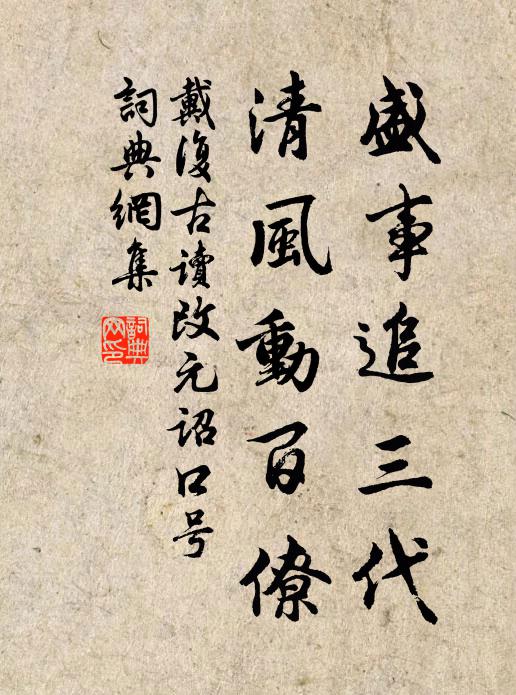 盛事追三代
清風動百僚
戴復古讀改元詔口号
詞典網集
詞典網印